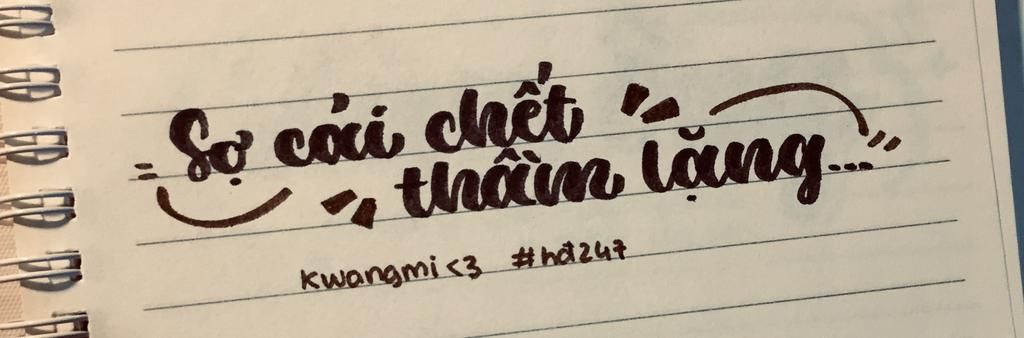 Sợ cái chết
thầm lặng...
kwangmi <3 #hđ247